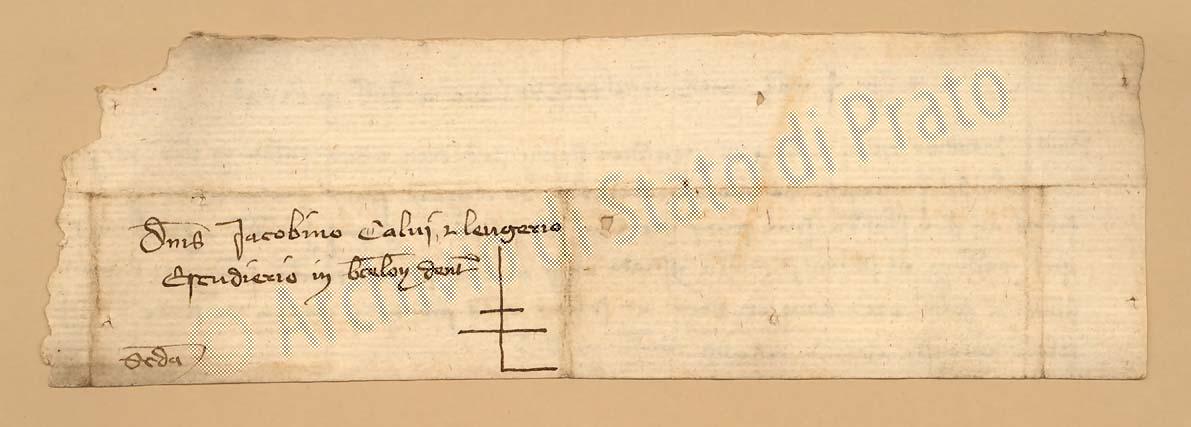 Dnis Jacobino Calui et leugerio
Escudierio in bcelon dent
Scda
© Archivio di Stato di Prato